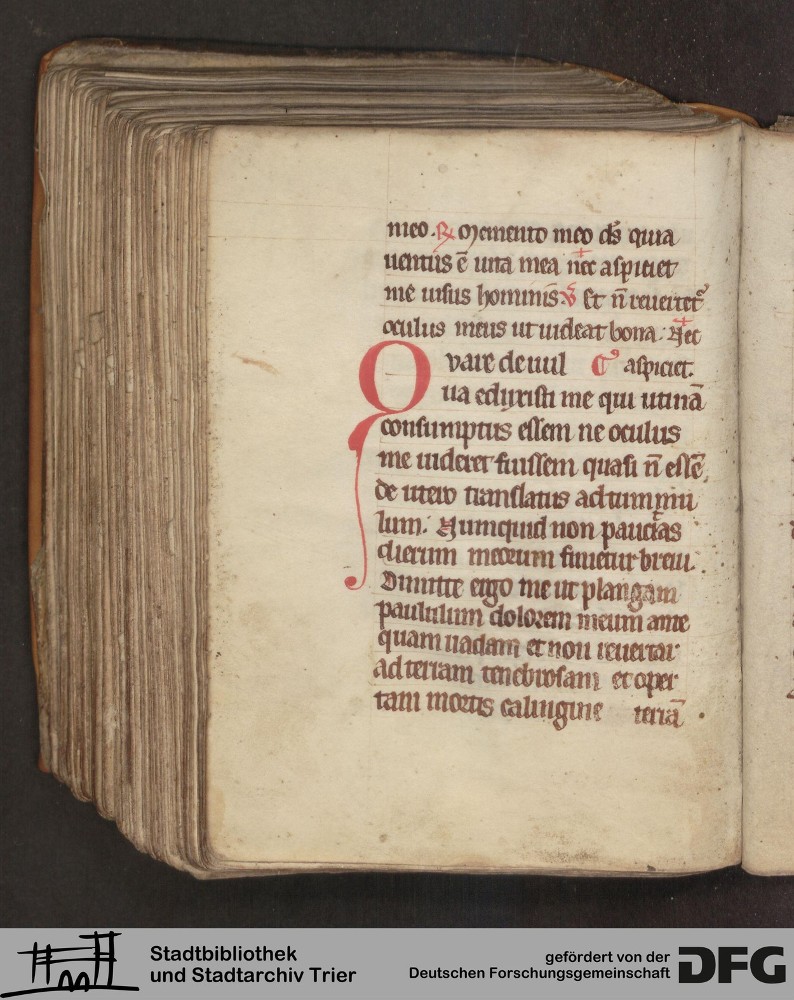 meo. R Memento mei ds quia
uentus ē uita mea nec aspiciet
me uisus hominis. V Et n̄ reuertet᷑
oculus meus ut uideat bona. Nec
Quare de uul aspiciet.
ua eduxisti me qui utinā
consumptus essem ne oculus
me uideret fuissem quasi n̄ essē
de utero translatus ad tumu
lum. Numquid non paucitas
dierum meorum finietur breui.
Dimitte ergo me ut plangam
paululum dolorem meum ante
quam uadam et non reuertar
ad terram tenebrosam et oper
tam mortis caligine terrā
Stadtbibliothek
und Stadtarchiv Trier
gefördert von der
Deutschen Forschungsgemeinschaft
DFG